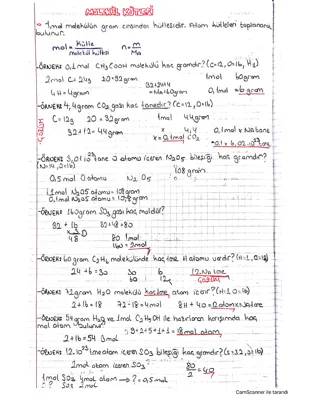 MOLEKÜL KÜTLESİ
1mol molekülün gram cinsinden kütlesidir. Atom kütleleri toplanarak bulunur.
mol = kütle / molekül kütlesi n = m / Ma
ÖRNEK: 0,1mol CH3COOH molekülü kaç gramdır? (C=12, O=16, H=1)
2mol C = 24g 2O = 32gram 1mol 60gram
4H = 4gram 32+24+4 = Ma = 60gram 0,1mol = 6gram
ÖRNEK: 4,4gram CO2 gazı kaç tanedir? (C=12, O=16)
ÇÖZÜM
C = 12g 2O = 32gram 1mol 44gram
32+12 = 44gram x 4,4 0,1mol x Na tane
x = 0,1mol CO2 = 0,1 x 6,02.10^23
ÖRNEK: 3,01.10^23 tane O atomu içeren N2O5 bileşiği kaç gramdır?
(N=14, O=16) 108gram
0,5mol O atomu N2O5
1mol N2O5 atomu = 108gram
0,1mol N2O5 atomu = 10,8gram
ÖRNEK: 160gram SO3 gazı kaç moldür?
32 + 16 32+48 = 80
x 3
48 80 1mol
160 = 2mol
ÖRNEK: 60gram C2H6 molekülünde kaç tane H atomu vardır? (H=1, C=12)
24+6 = 30 30 6 12 Na tane
60 12 ÇÖZÜM
ÖRNEK: 72gram H2O molekülü kaç tane atom içerir? (H=1, O=16)
2+16 = 18 72÷18 = 4mol 8H + 4O =
ÖRNEK: 54gram H2O ve 1mol C2H5OH ile hazırlanan karışımda kaç mol atom bulunur?
2+16 = 54 3 9+2+5+1+1 = 18mol atom
ÖRNEK: 12.10^23 tane atom içeren SO3 bileşiği kaç gramdır? (S=32, O=16)
2mol atom içeren SO3 80/2 = 40
1mol SO3 4mol atom → ? = 0,5mol
CamScanner ile tarandı